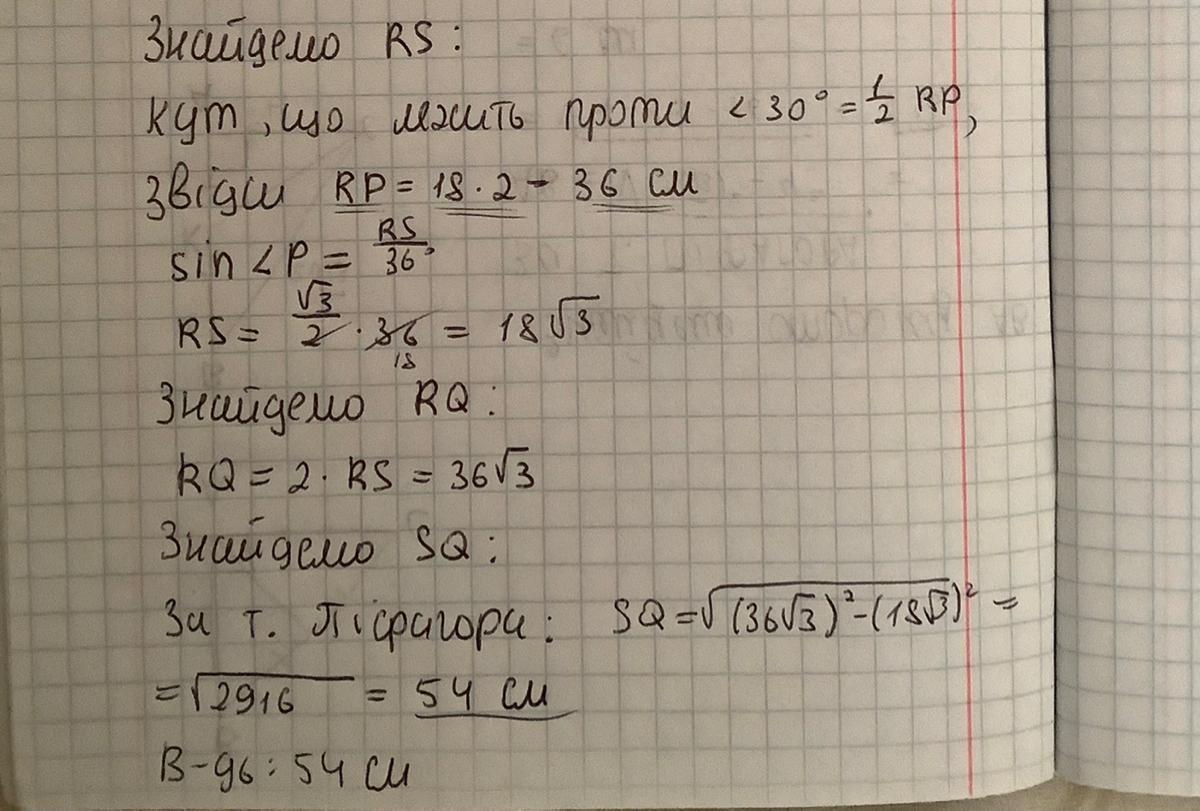 Знайдемо RS:
кут, що лжить проти < 30° = 1/2 RP,
звідси RP = 18 · 2 - 36 см
sin < P = RS/36,
RS = √3/2 · 36 18 = 18√3
Знайдемо RQ:
RQ = 2 · RS = 36√3
Знайдемо SQ:
За т. Піфагора: SQ = √(36√3)² - (18√3)² =
= √2916 = 54 см
В-дь: 54 см